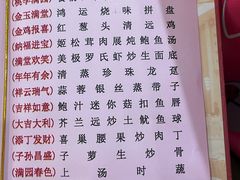 (金玉满堂) 鸿运烧味拼盘
(金鸡报喜) 红葱头清远鸡
(纳福进宝) 姬松茸肉展炖鲍鱼汤
(满堂欢笑) 美极罗氏虾炒生面底
(年年有余) 清蒸珍珠龙趸
(祥云瑞气) 蒜蓉银丝蒸带子
(吉祥如意) 鲍汁迷你菇扣鱼唇
(大吉大利) 芥兰远炒土鱿鱼球
(添丁发财) 喜巢腰果炒肉丁
(子孙昌盛) 子萝生炒骨
(满园春色) 上汤时蔬